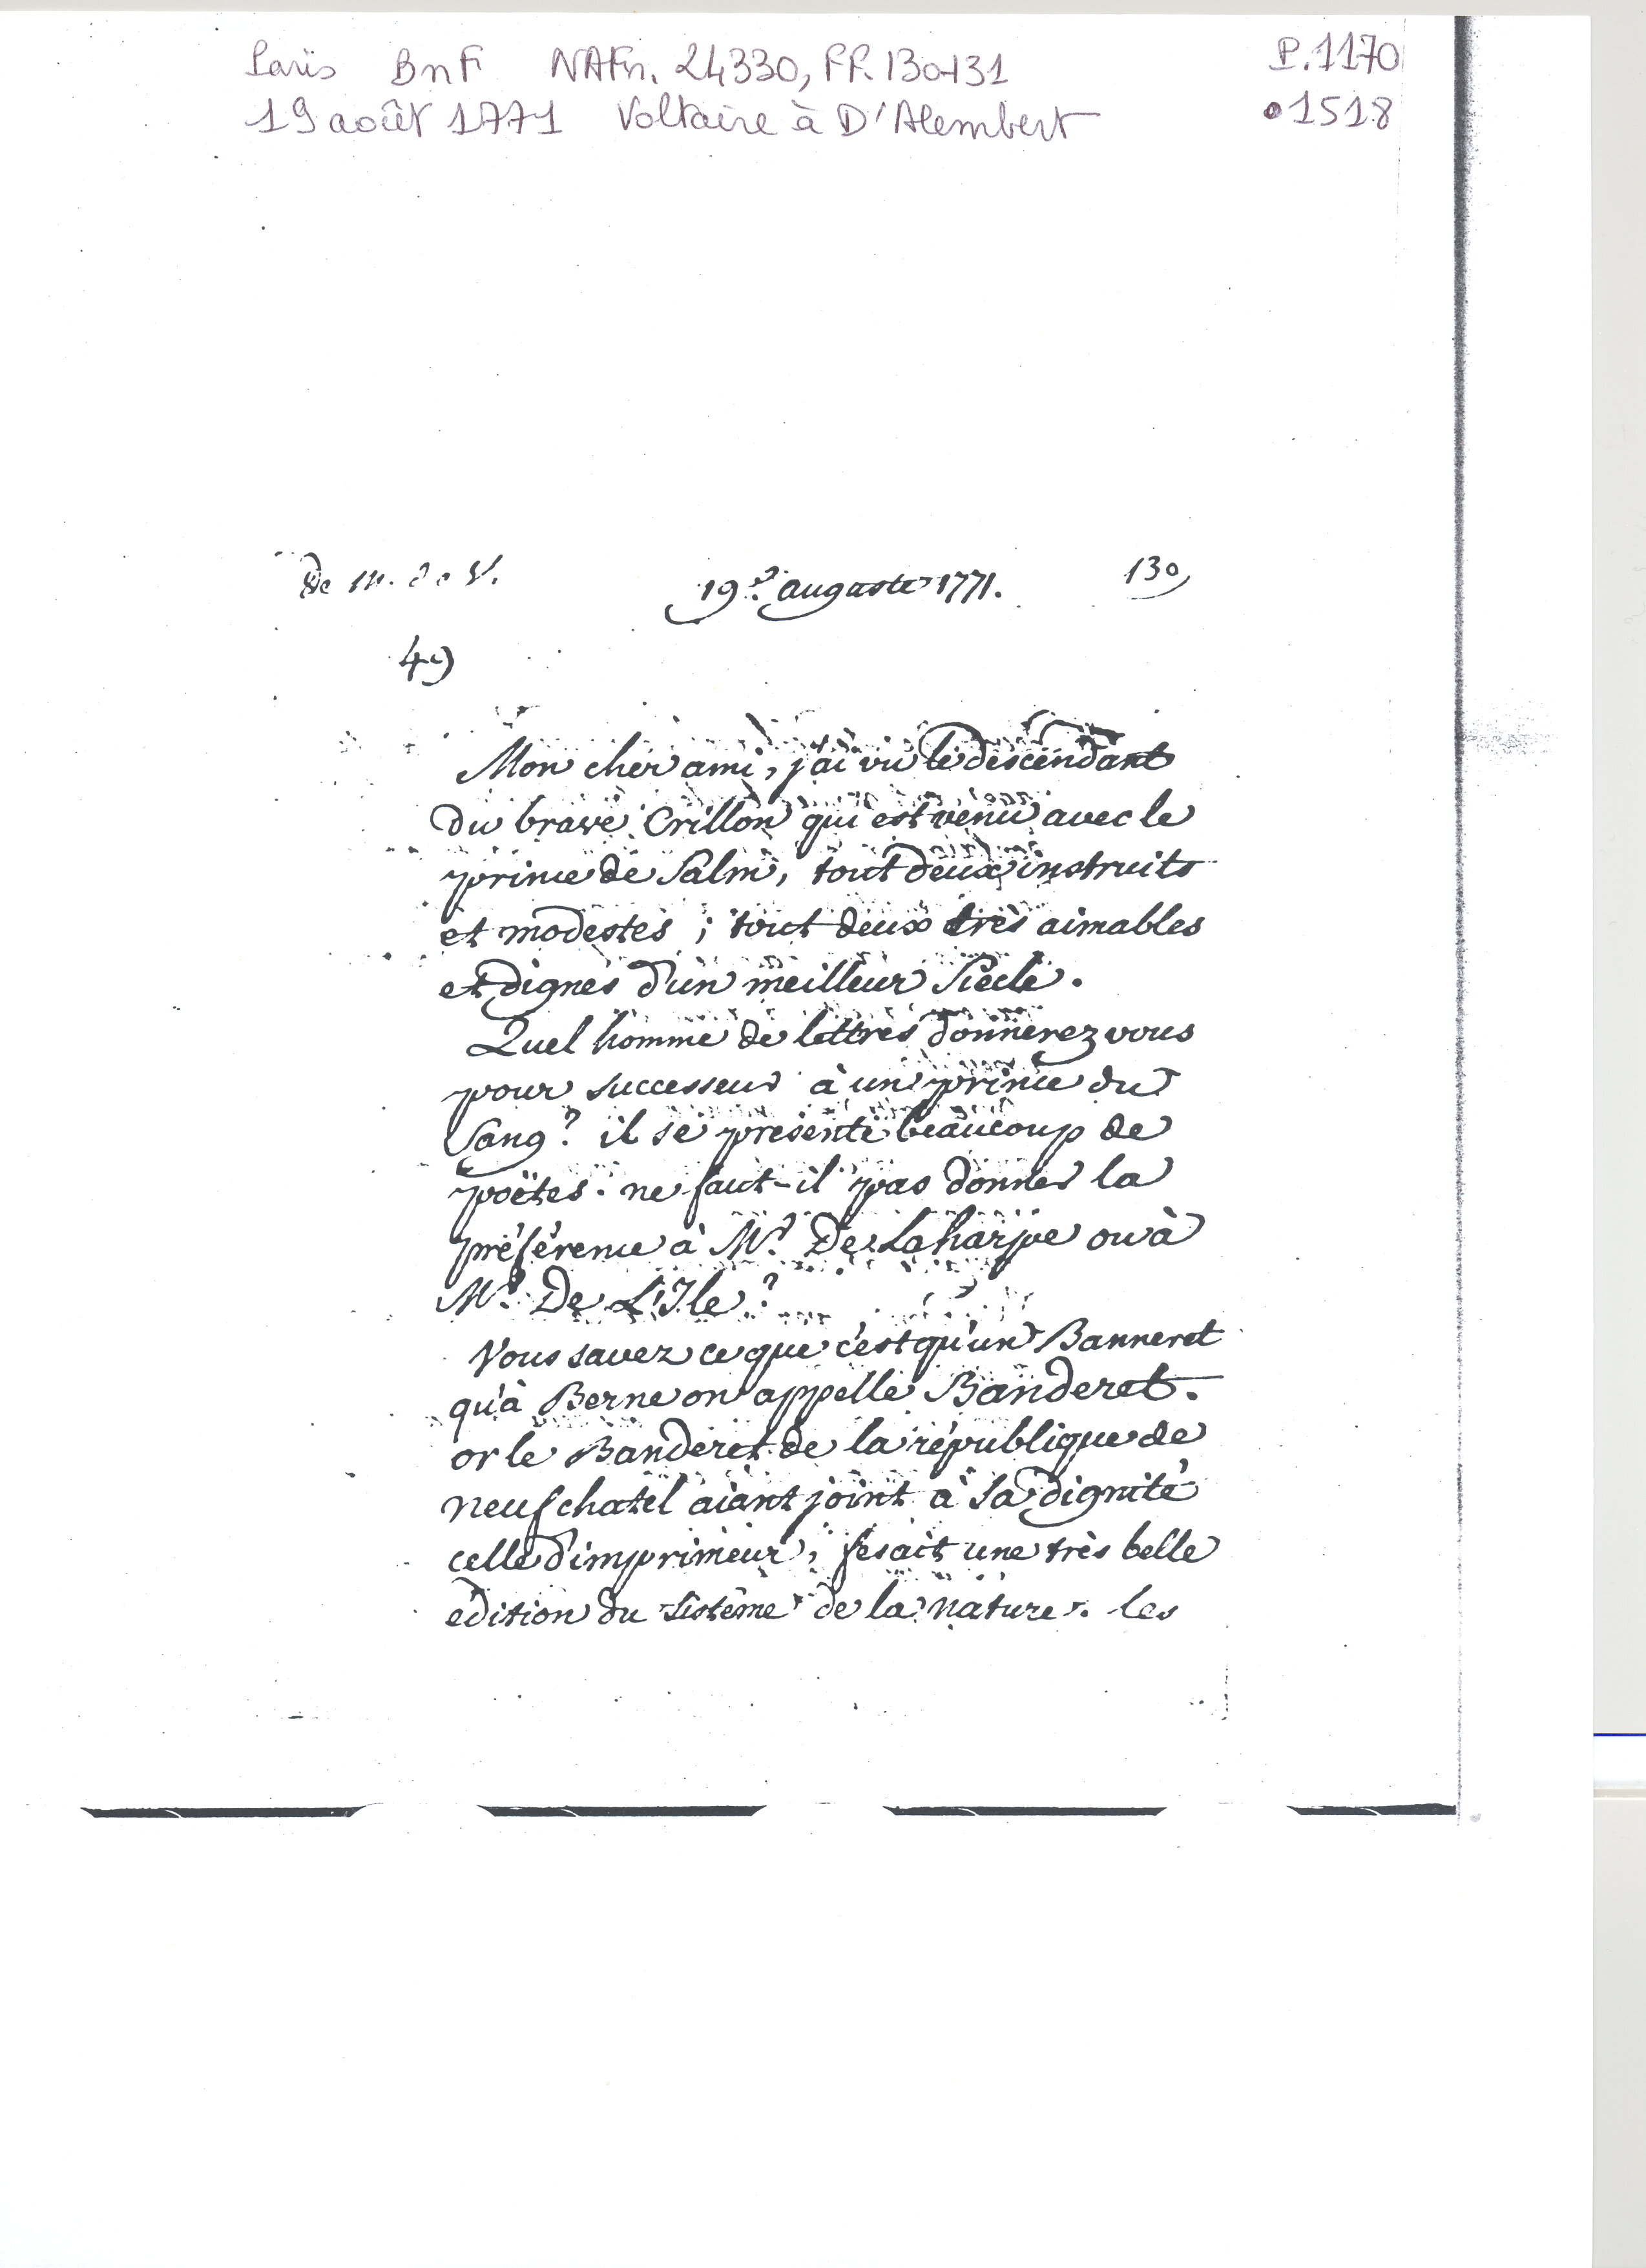 Paris BnF NAFr. 24330, ff. 130-131 P. 1170
19 août 1771 Voltaire à D'Alembert 1518
De M. de V. 19e. auguste 1771. 130
49
Mon cher ami, j'ai vu le descendant
du brave Crillon qui est venu avec le
prince de Salm, tout deux instruits
et modestes ; tout deux très aimables
et dignes d'un meilleur Siècle.
Quel homme de lettres donnerez vous
pour successeur à un prince du
Sang ? il se présente beaucoup de
poëtes. ne faut-il pas donner la
préférence à Mr. De Laharpe ou à
Mr. De L'Ile ?
Vous savez ce que c'est qu'un Banneret
qu'à Berne on appelle Banderet.
or le Banderet de la république de
neufchatel aiant joint à sa dignité
celle d'imprimeur, fesait une très belle
édition du Sistême de la nature. les